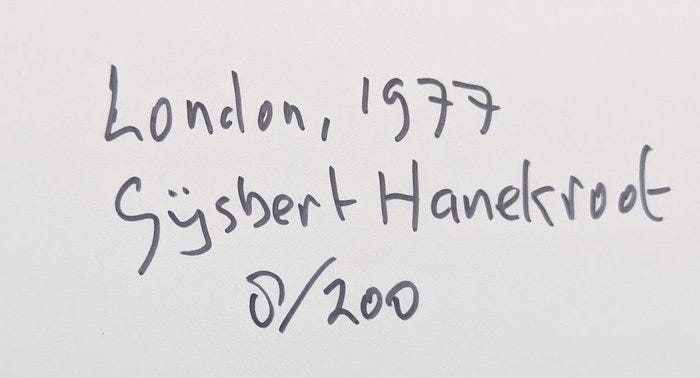 London, 1977
Gijsbert Hanekroot
8/200